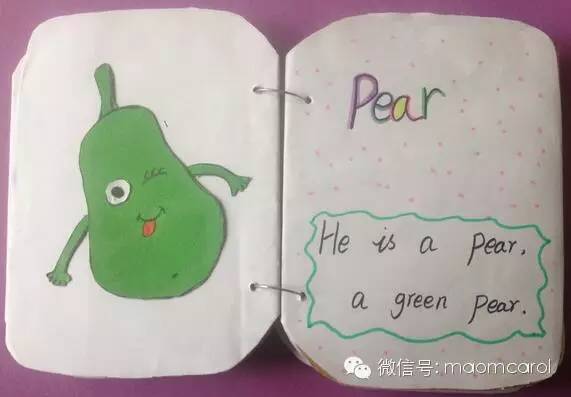 Pear
He is a pear,
a green pear.
微信号: maomcarol